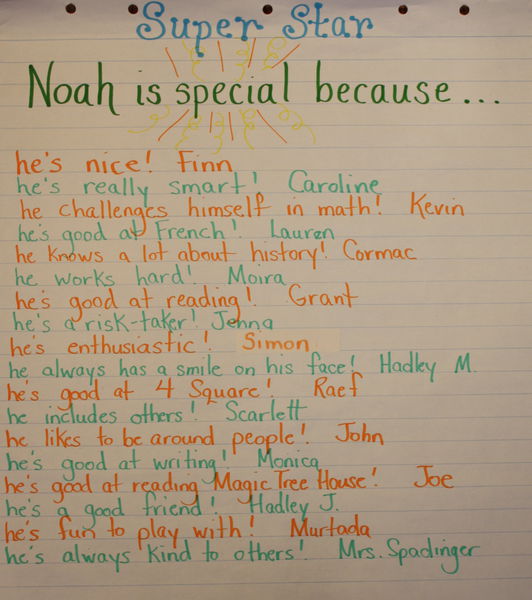 Super Star
Noah is special because...
he's nice! Finn
he's really smart! Caroline
he challenges himself in math! Kevin
he's good at French! Lauren
he knows a lot about history! Cormac
he works hard! Moira
he's good at reading! Grant
he's a risk-taker! Jenna
he's enthusiastic! Simon
he always has a smile on his face! Hadley M.
he's good at 4 Square! Raef
he includes others! Scarlett
he likes to be around people! John
he's good at writing! Monica
he's good at reading Magic Tree House! Joe
he's a good friend! Hadley J.
he's fun to play with! Murtada
he's always kind to others! Mrs. Spadinger